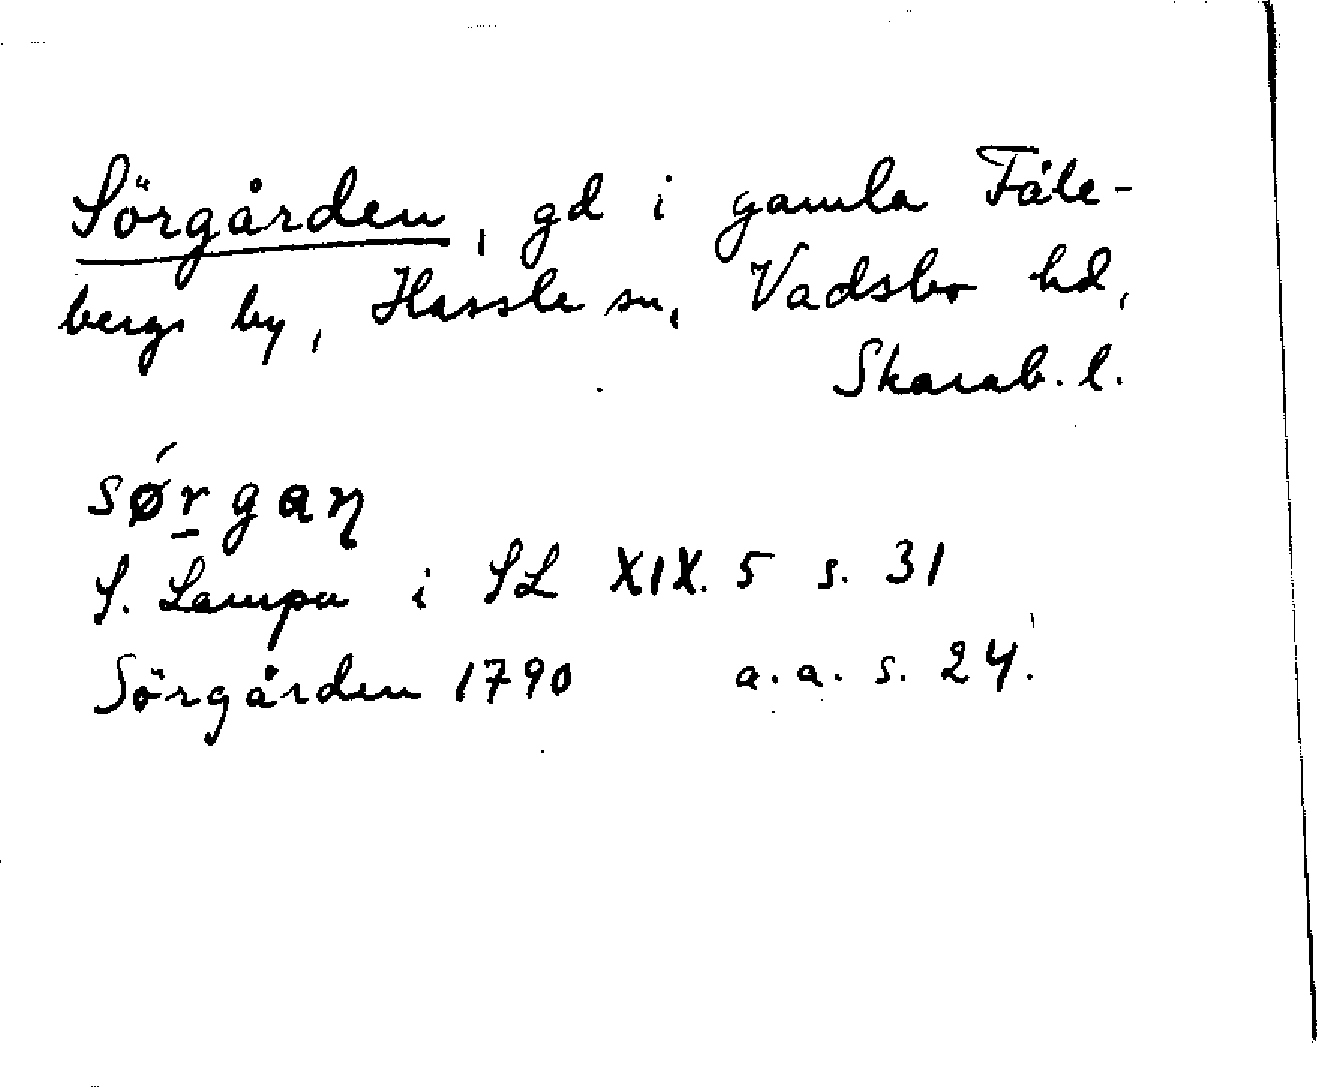 Sörgården, gd i gamla Fåle-
bergs by, Hassle sn, Vadsbo hd,
Skarab. l.
sǿr̲gaɳ
S. Lampa i SL XIX. 5 s. 31
Sörgården 1790 a.a. s. 24.